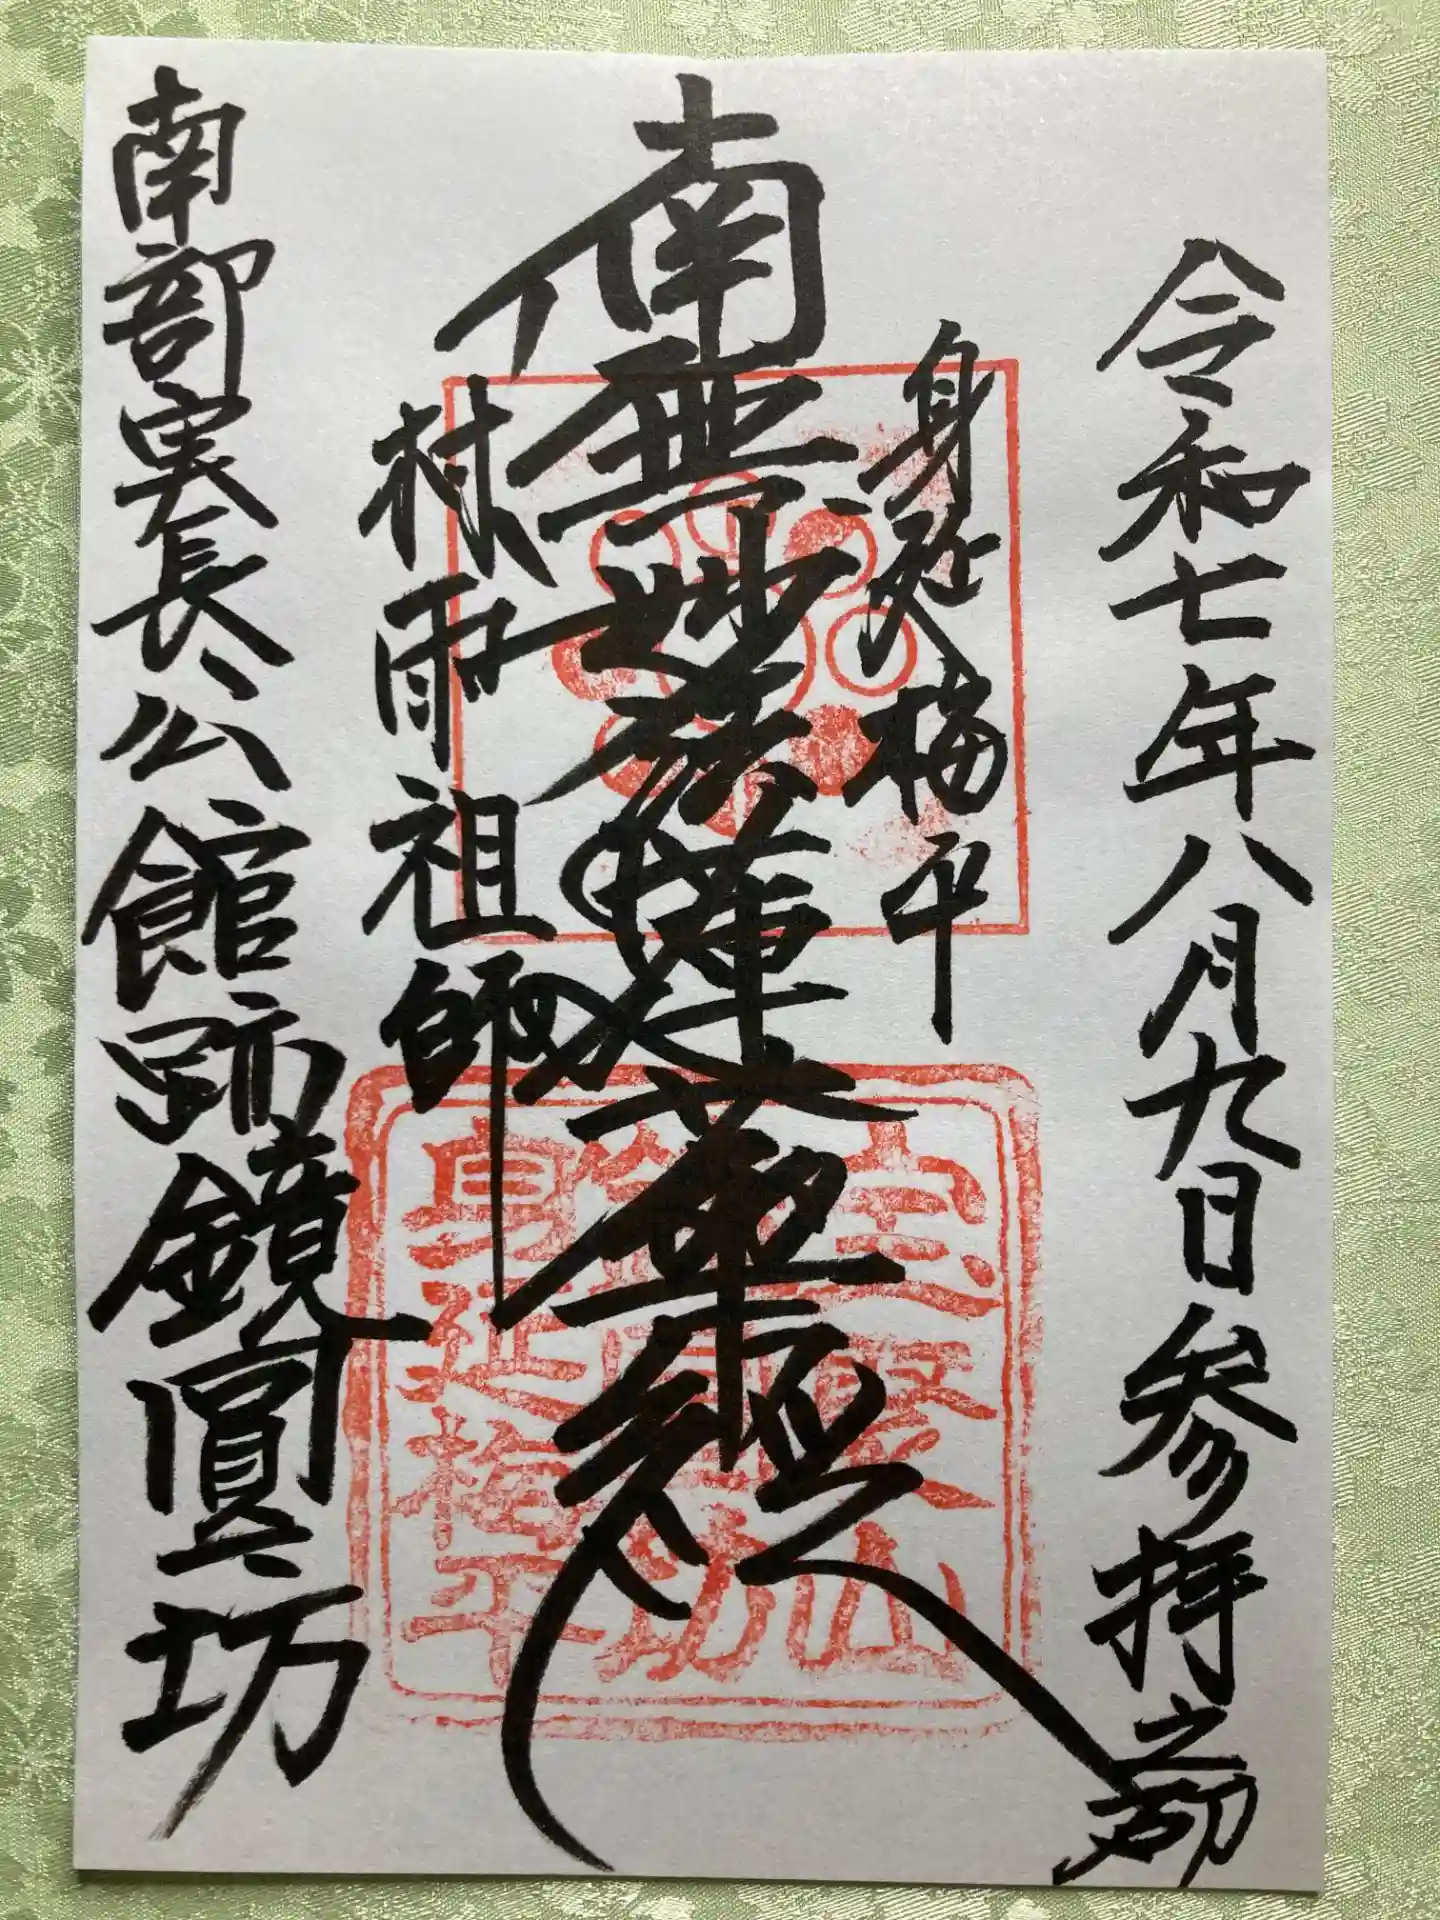 令和七年八月九日参拝之砌
身延梅平
南無妙法蓮華経
村雨祖師
南部実長公館跡鏡圓坊
山
身延梅平